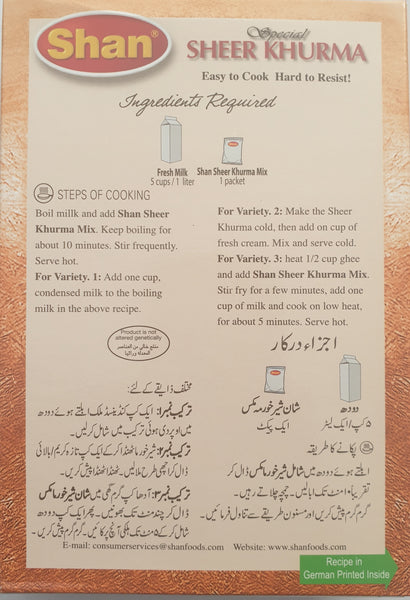 Shan®
Special
SHEER KHURMA
Easy to Cook Hard to Resist!
Ingredients Required
Fresh Milk
5 cups / 1 liter
Shan Sheer Khurma Mix
1 packet
STEPS OF COOKING
Boil millk and add Shan Sheer
Khurma Mix. Keep boiling for
about 10 minutes. Stir frequently.
Serve hot.
For Variety. 1: Add one cup,
condensed milk to the boiling
milk in the above recipe.
For Variety. 2: Make the Sheer
Khurma cold, then add on cup of
fresh cream. Mix and serve cold.
For Variety. 3: heat 1/2 cup ghee
and add Shan Sheer Khurma Mix.
Stir fry for a few minutes, add one
cup of milk and cook on low heat,
for about 5 minutes. Serve hot.
Product is not
altered genetically
منتج خالي من العناصر
المعدلة وراثيا
اجزاء درکار
دودھ
۵ کپ/ایک لیٹر
شان شیر خورمہ مکس
ایک پیکٹ
پکانے کا طریقہ
ابلتے ہوئے دودھ میں شان شیر خورمہ مکس ڈال کر
تقریباً ۱۰ منٹ تک ابالیں۔ چمچہ چلاتے رہیں۔
گرم گرم پیش کریں اور مسنون طریقے سے تناول فرمائیں۔
مختلف ذائقے کے لئے:
ترکیب نمبر۱: ایک کپ کنڈینسڈ ملک ابلتے ہوئے دودھ
میں اوپر دی ہوئی ترکیب میں شامل کریں۔
ترکیب نمبر۲: شیر خورمہ ٹھنڈا کرکے ایک کپ تازہ کریم/بالائی
ڈال کر اچھی طرح ملالیں۔ ٹھنڈا ٹھنڈا پیش کریں۔
ترکیب نمبر۳: آدھا کپ گرم گھی میں شان شیر خورمہ مکس
ڈال کر چند منٹ تک بھونیں۔ پھر ایک کپ دودھ
ڈال کر ۵ منٹ تک ہلکی آنچ پر پکائیں۔ گرم گرم پیش کریں۔
E-mail: consumerservices@shanfoods.com Website: www.shanfoods.com
Recipe in
German Printed Inside